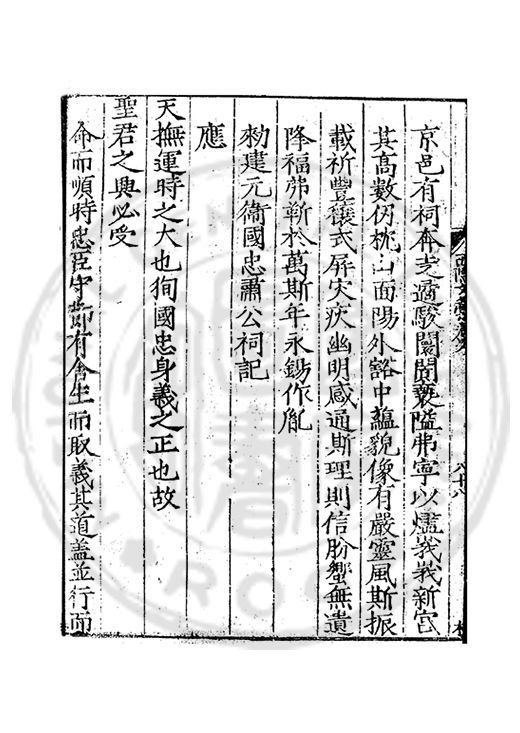 京邑有祠奔走遹駿闤闠褻隘弗寧以爐峩峩新宮
其高數仞枕山面陽外豁中蘊貌像有嚴靈風斯振
載祈豐穰式屏灾疾幽明感通斯理則信肹蠁無遺
降福弗靳於萬斯年永錫作胤
勑建元衞國忠肅公祠記
應
天撫運時之大也狥國忠身義之正也故
聖君之興必受
命而順時忠臣守節有舍生而取義其道盖並行而